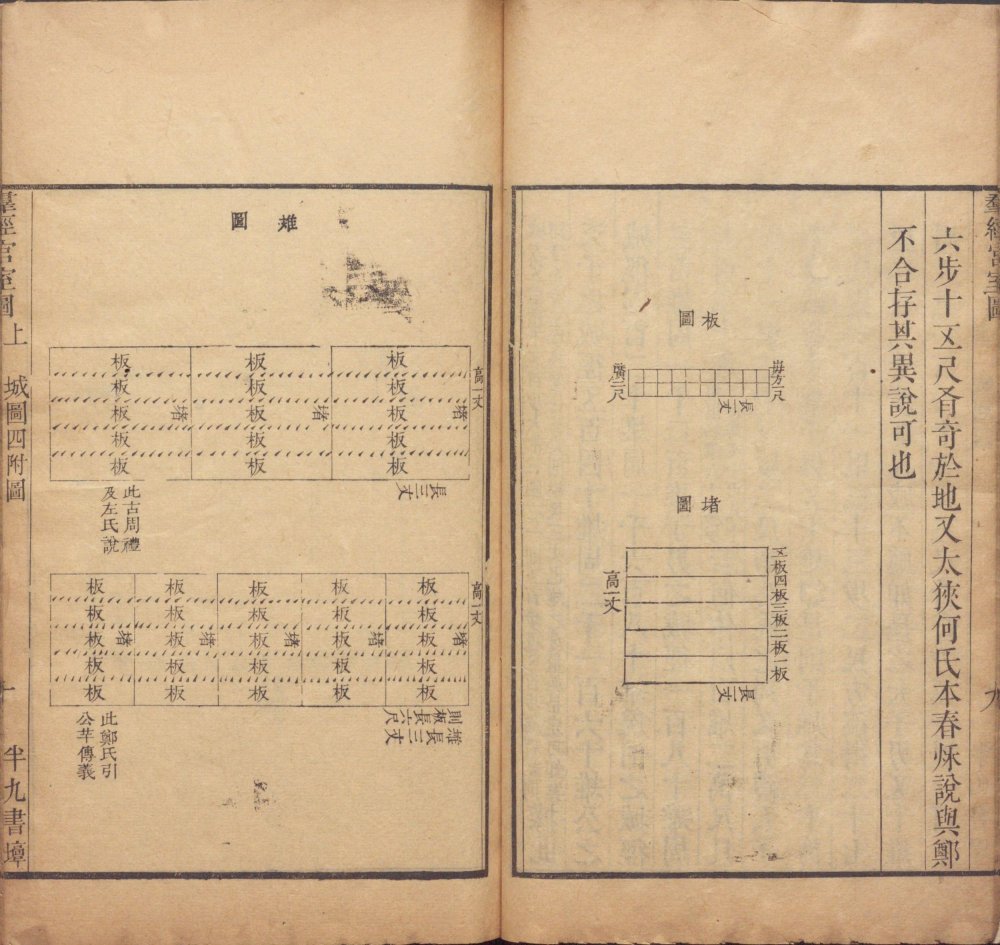 羣經宮室圖
六步十五尺肴奇於地又太狹何氏本春秌說與鄭
不合存其異說可也
板圖
毋方一尺
廣二尺
長一丈
堵圖
五板四板三板二板一板
高一丈
長一丈
雉圖
高一丈
板 板 板
板 板 板
板 堵 板 堵 板 堵
板 板 板
板 板 板
長三丈
此古周禮
及左氏說
高一丈
板 板 板 板 板
板 板 板 板 板
板 堵 板 堵 板 堵 板 堵 板 堵
板 板 板 板 板
板 板 板 板 板
雉長三丈
則板長六尺
此鄭氏引
公羊傳義
羣經宮室圖上 城圖四附圖 十 半九書塾